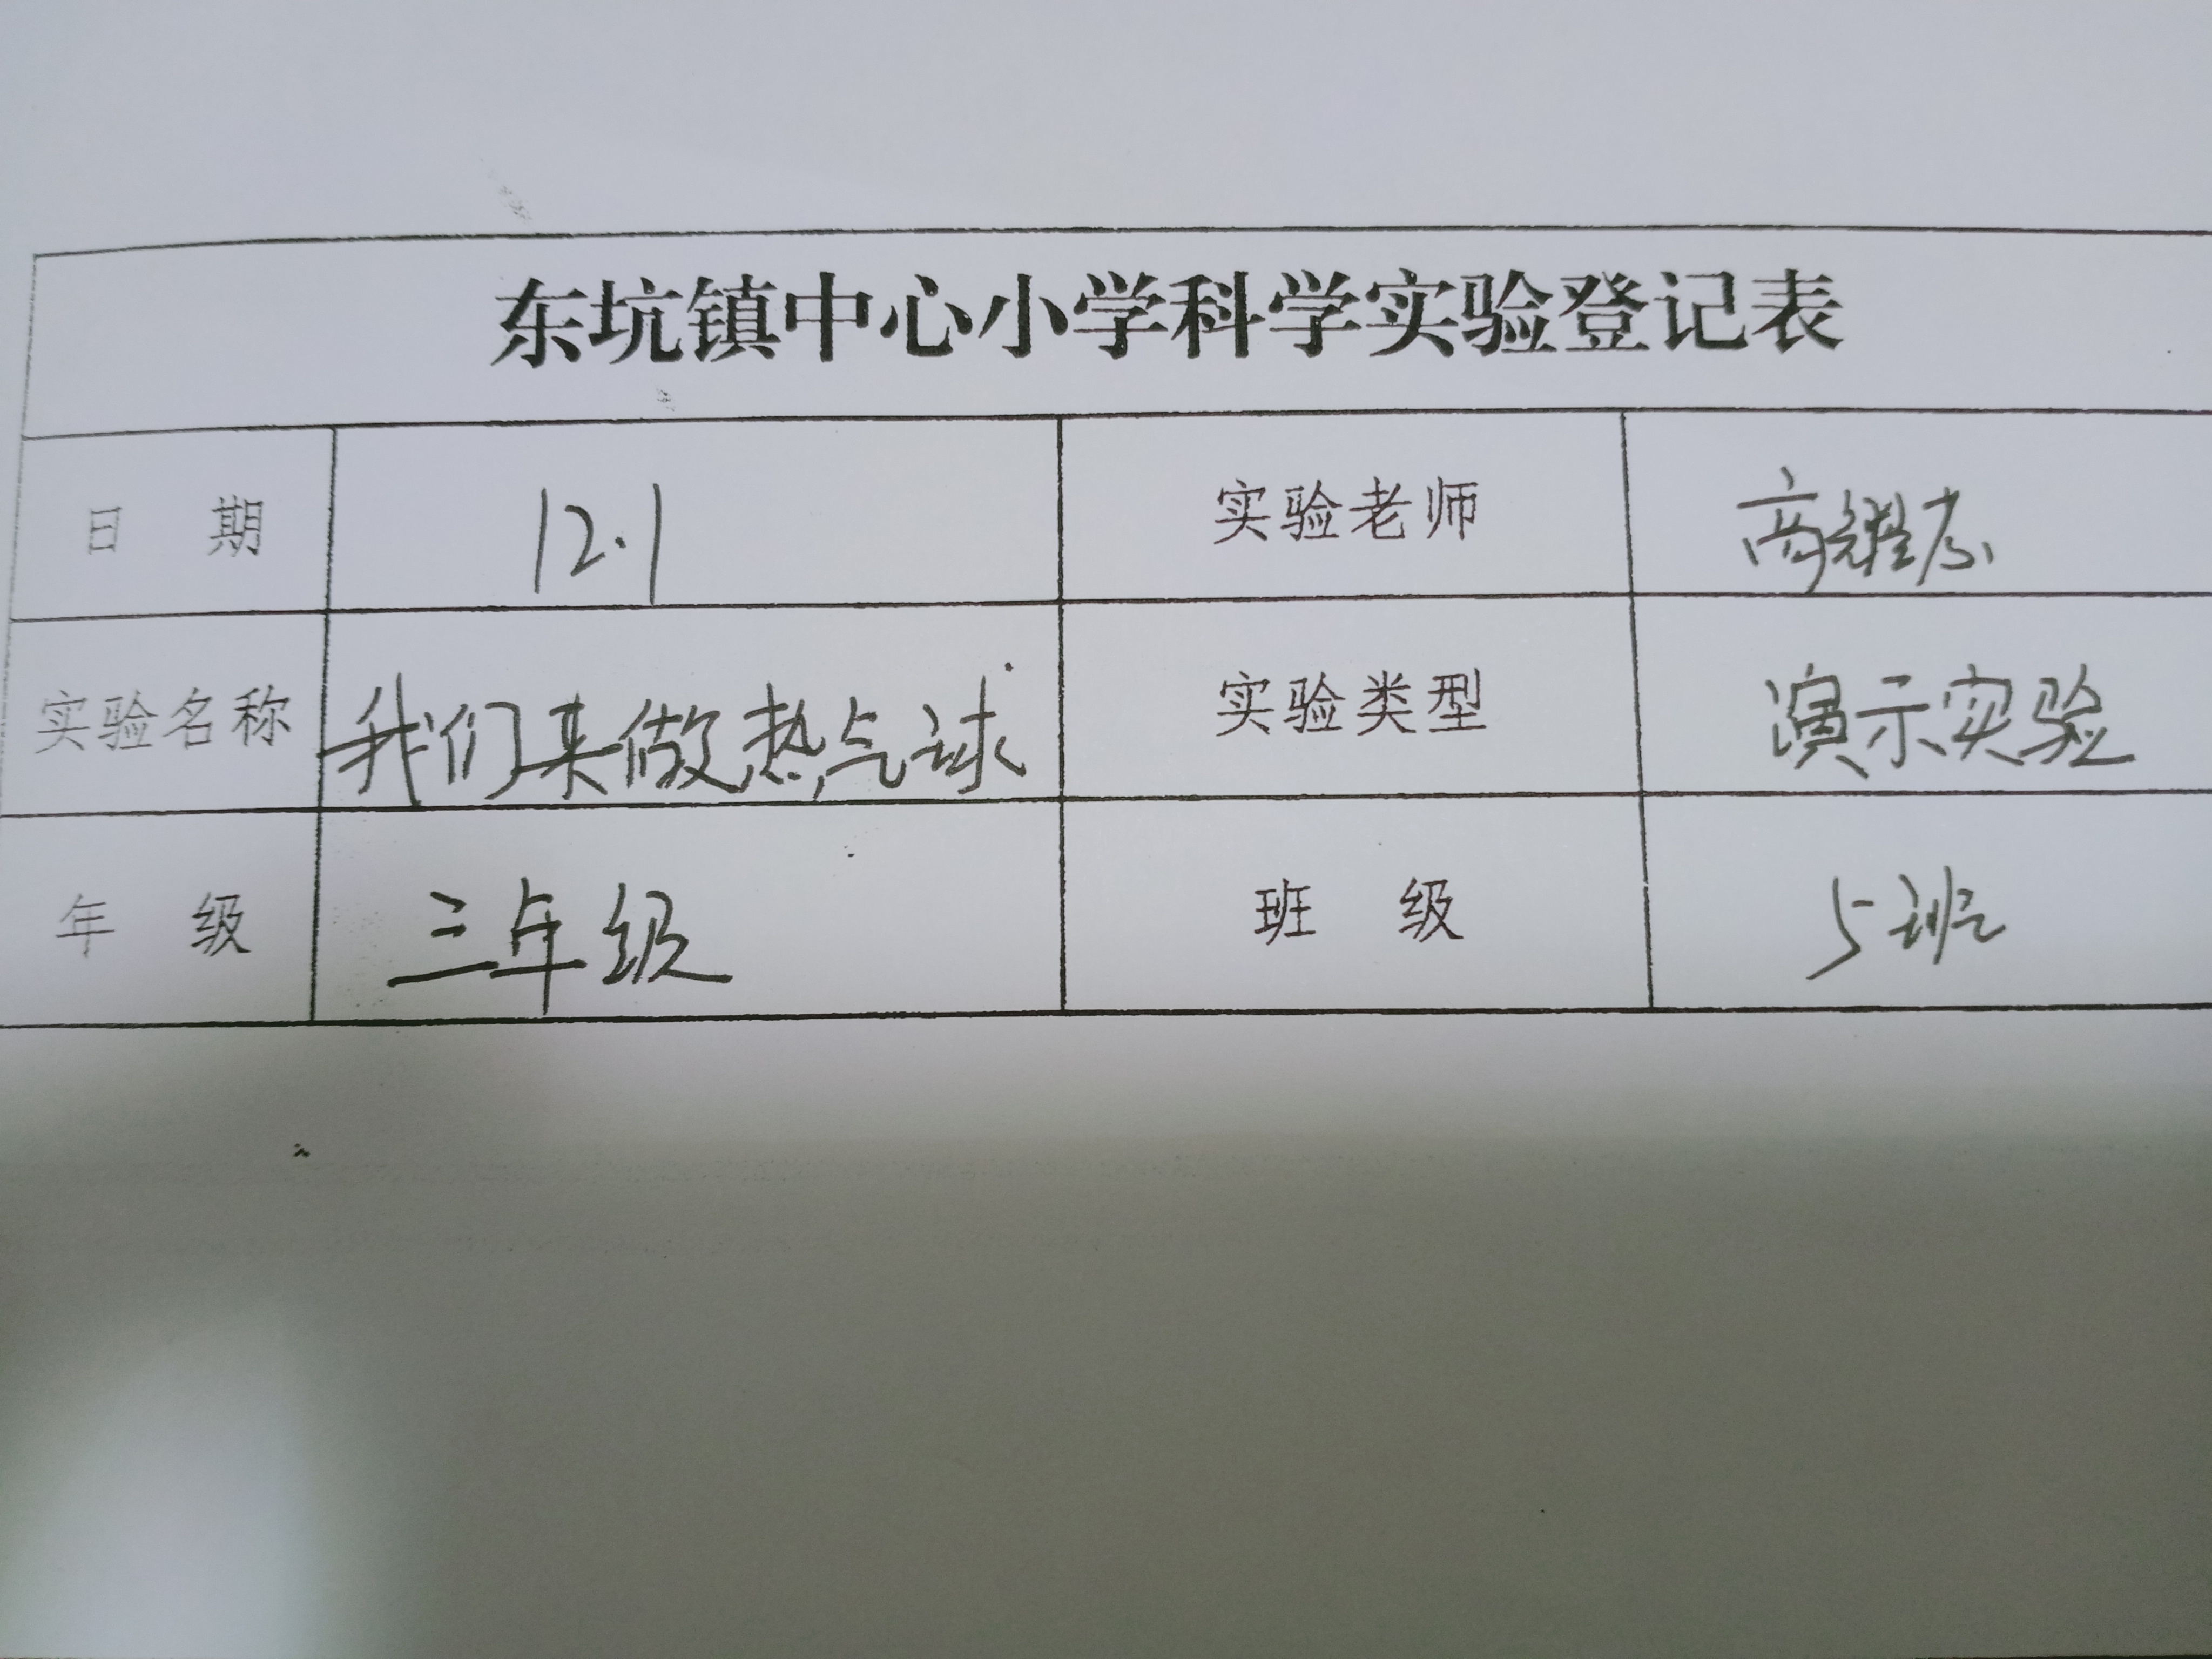 东坑镇中心小学科学实验登记表
日 期 12.1 实验老师 高耀
实验名称 我们来做热气球 实验类型 演示实验
年 级 三年级 班 级 5班